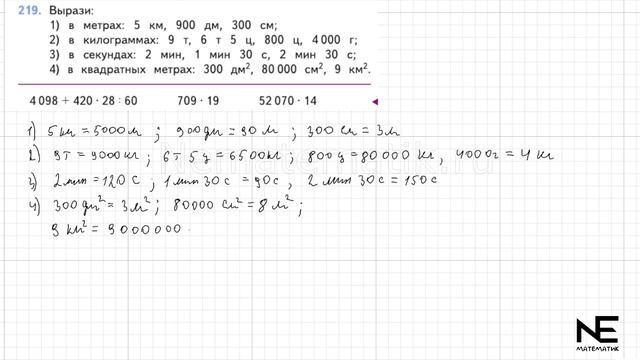 219. Вырази:
1) в метрах: 5 км, 900 дм, 300 см;
2) в килограммах: 9 т, 6 т 5 ц, 800 ц, 4 000 г;
3) в секундах: 2 мин, 1 мин 30 с, 2 мин 30 с;
4) в квадратных метрах: 300 дм², 80 000 см², 9 км².
4 098 + 420 · 28 : 60 709 · 19 52 070 · 14
1) 5 км = 5000 м ; 900 дм = 90 м ; 300 см = 3 м
2) 9 т = 9000 кг ; 6 т 5 ц = 6500 кг ; 800 ц = 80 000 кг, 4000 г = 4 кг
3) 2 мин = 120 с ; 1 мин 30 с = 90 с, 2 мин 30 с = 150 с
4) 300 дм² = 3 м² ; 80000 см² = 8 м² ;
9 км² = 9000000
NE
МАТЕМАТИК